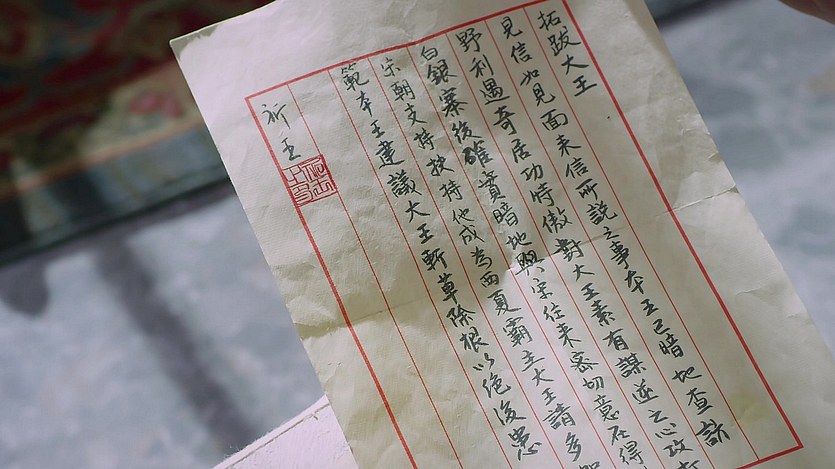 拓跋大王
見信如見面来信所説之事本王已暗地查訪
野利遇奇居功恃傲對大王素有謀逆之心攻
白銀寨後確實暗地與宋往来密切意在得
宋朝支持扶持他成為西夏霸主大王請多
範本王建議大王斬草除根以绝後患
祈王